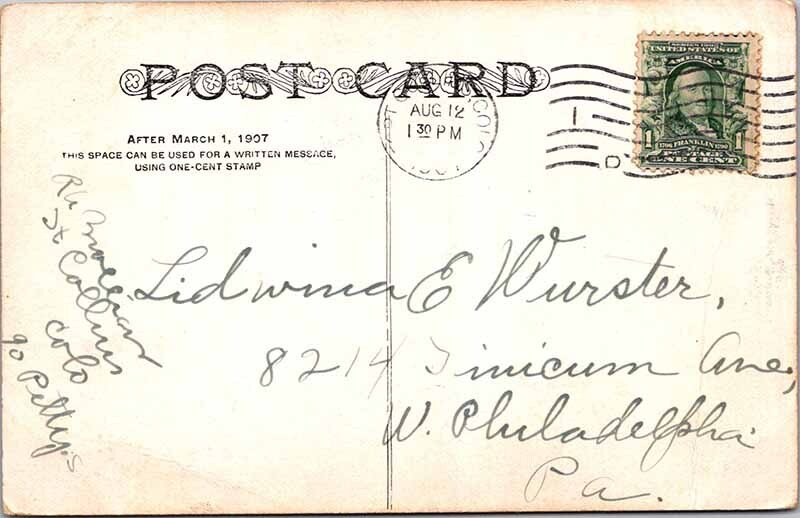 POST CARD
AFTER MARCH 1, 1907
THIS SPACE CAN BE USED FOR A WRITTEN MESSAGE,
USING ONE-CENT STAMP
COLO
AUG 12
1 30 PM
1
D
SERIES 1902
UNITED STATES OF
AMERICA
1
1706 FRANKLIN 1790
POSTAGE
ONE CENT
Ft Collins
Colo
go Pettys
Lidwina E Wurster,
8214 Tinicum Ave,
W. Philadelphia
Pa.